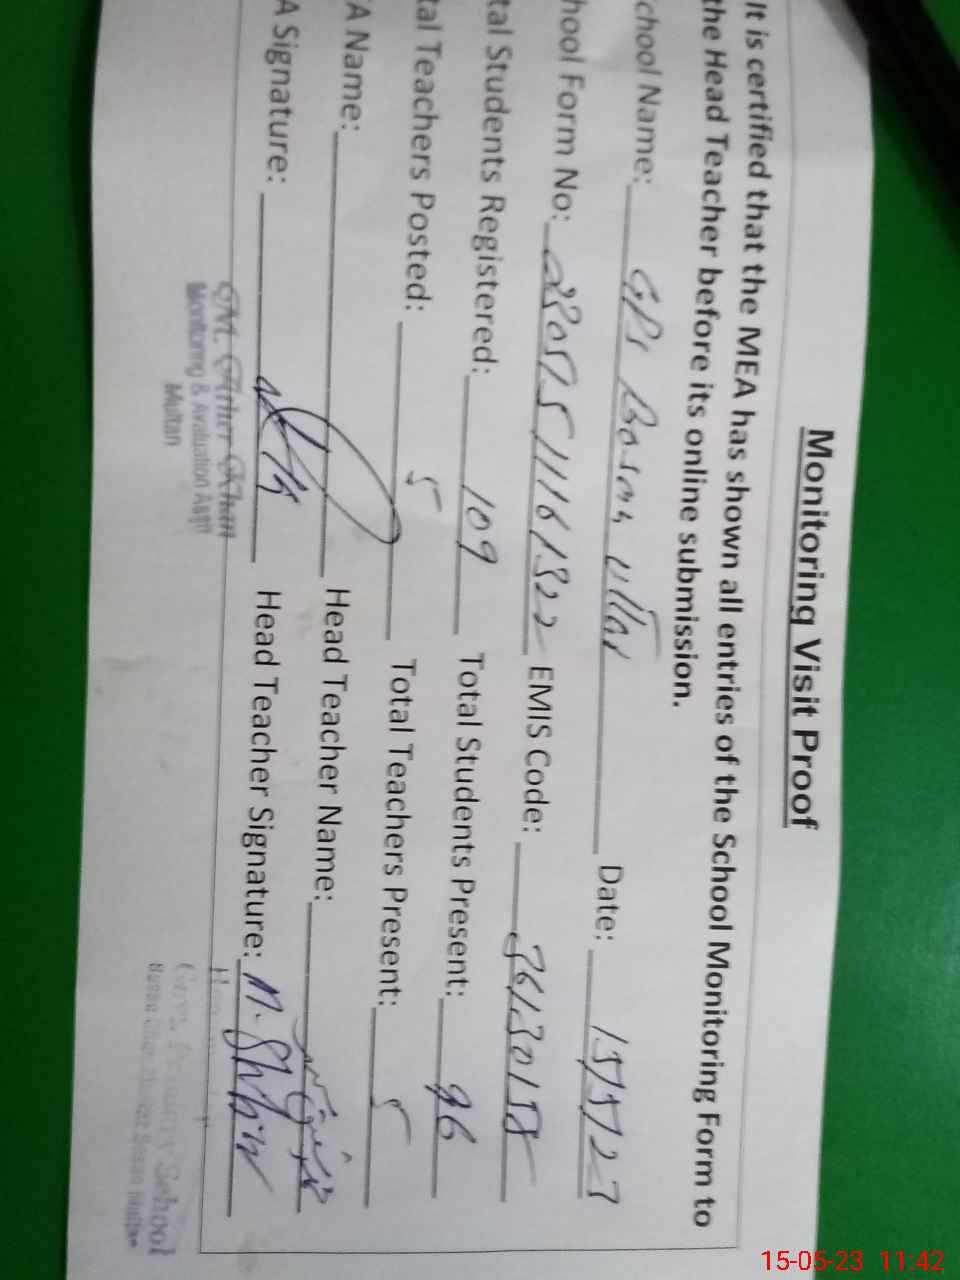 Monitoring Visit Proof
It is certified that the MEA has shown all entries of the School Monitoring Form to
the Head Teacher before its online submission.
chool Name: GPS Bosan Uttar Date: 15/5/23
hool Form No: EMIS Code: 36130158
tal Students Registered: 109 Total Students Present: 96
tal Teachers Posted: 5 Total Teachers Present: 5
A Name: Head Teacher Name:
A Signature: Head Teacher Signature:
Khan
Monitoring & Avaluation Asstt
Multan
Primary School
15-05-23 11:42